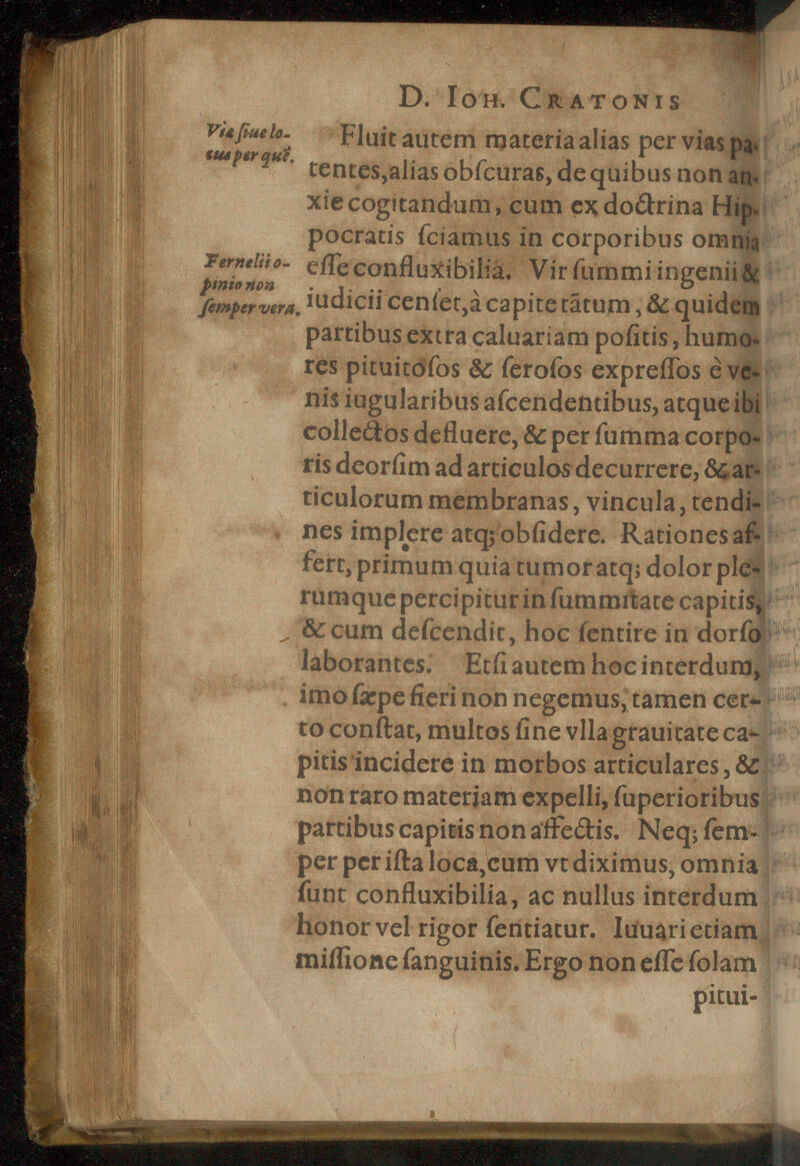 D. Ioh. CRATONIS
Via siue lo-
cus per quē.
Fluit autem materia alias per vias pa-
tentes, alias obſcuras, de quibus non an-
xie cogitandum, cum ex doctrina Hip-
pocratis ſciamus in corporibus omnia
Fernelii o-
pinio non
ſemper vera.
eſſe confluxibilia. Vir ſummi ingenii &
iudicii cenſet, à capite tātum, & quidem
partibus extra caluariam poſitis, humo-
res pituitoſos & ſeroſos expreſſos è ve-
nis iugularibus aſcendentibus, atque ibi
collectos defluere, & per ſumma corpo-
ris deorſim ad articulos decurrere, & ar-
ticulorum membranas, vincula, tendi-
nes implere atq; obſidere. Rationes af-
fert, primum quia tumor atq; dolor ple-
rumque percipitur in ſummitate capitis,
& cum deſcendit, hoc ſentire in dorſo
laborantes. Etſi autem hoc interdum,
imo ſæpe fieri non negemus, tamen cer-
to conſtat, multos ſine vlla grauitate ca-
pitis incidere in morbos articulares, &
non raro materiam expelli, ſuperioribus
partibus capitis non affectis. Neq; ſem-
per per iſta loca, cum vt diximus, omnia
ſunt confluxibilia, ac nullus interdum
honor vel rigor ſentiatur. Iuuari etiam
miſſione ſanguinis. Ergo non eſſe ſolam
pitui-